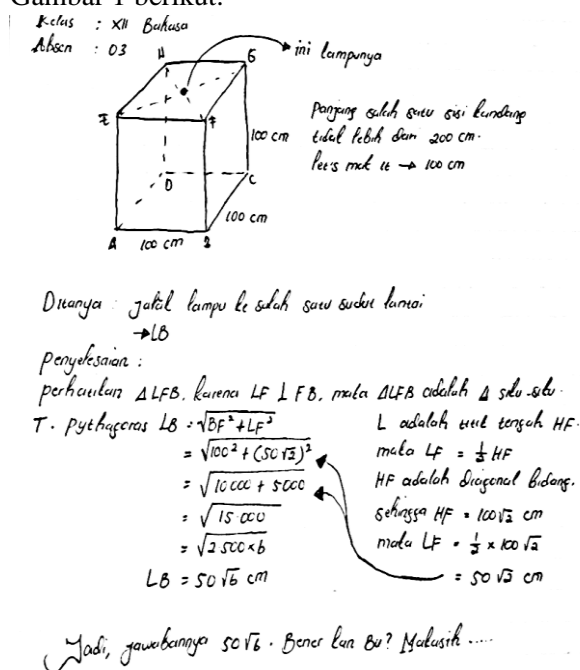 Gambar 1 berikut.
Kelas : XII Bahasa
Absen : 03
H G
ini lampunya
E F
100 cm
D C
100 cm
A 100 cm B
Panjang salah satu sisi kandang
tidak lebih dari 200 cm.
let's mak it → 100 cm
Ditanya : jarak lampu ke salah satu sudut lantai
→ LB
Penyelesaian :
perhatikan ΔLFB. karena LF ⊥ FB, maka ΔLFB adalah Δ siku-siku.
T. Pythagoras LB = √BF² + LF²
= √100² + (50√2)²
= √10000 + 5000
= √15.000
= √2500×6
LB = 50√6 cm
L adalah titik tengah HF.
maka LF = ½ HF
HF adalah Diagonal Bidang.
sehingga HF = 100√2 cm
maka LF = ½ × 100√2
= 50√2 cm
Jadi, jawabannya 50√6. Bener kan Bu? Makasih .....